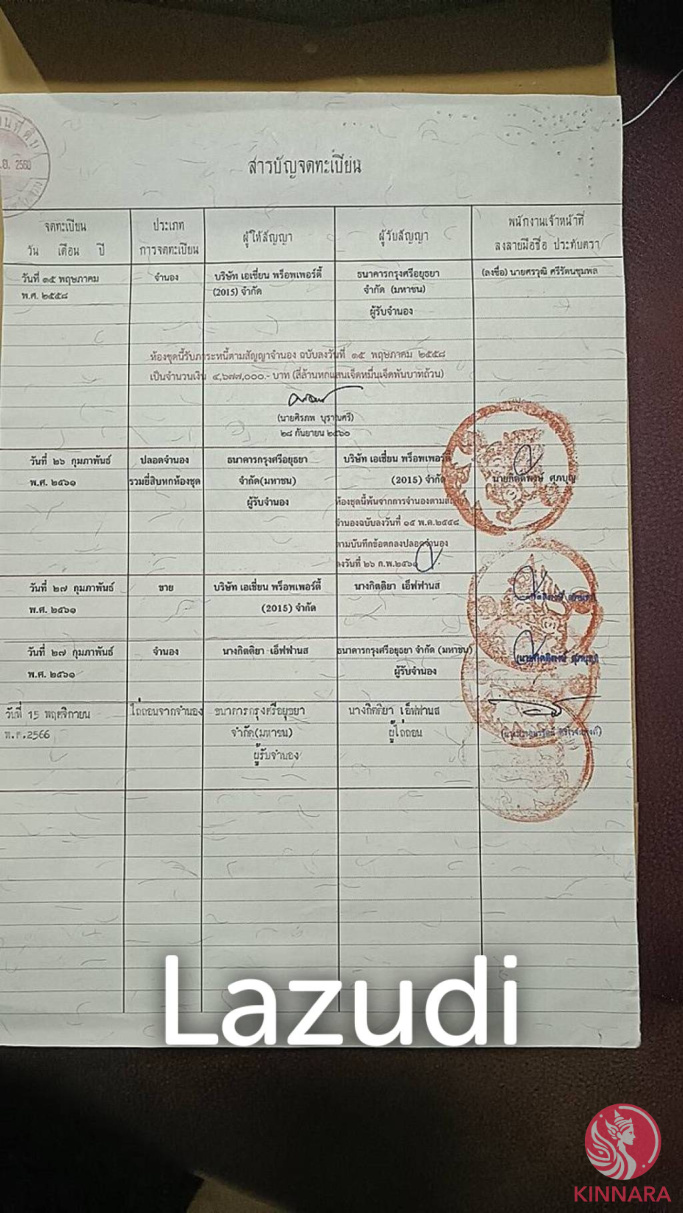 สารบัญจดทะเบียน
จดทะเบียน
วัน เดือน ปี
ประเภท
การจดทะเบียน
ผู้ให้สัญญา
ผู้รับสัญญา
พนักงานเจ้าหน้าที่
ลงลายมือชื่อ ประทับตรา
วันที่ ๑๕ พฤษภาคม
พ.ศ. ๒๕๕๘
จำนอง
บริษัท เอเชี่ยน พร็อพเพอร์ตี้
(2015) จำกัด
ธนาคารกรุงศรีอยุธยา
จำกัด (มหาชน)
ผู้รับจำนอง
(ลงชื่อ) นายศรวุฒิ ศรีรัตนชุมพล
ห้องชุดนี้รับภาระหนี้ตามสัญญาจำนอง ฉบับลงวันที่ ๑๕ พฤษภาคม ๒๕๕๘
เป็นจำนวนเงิน ๔,๖๗๗,๐๐๐.- บาท (สี่ล้านหกแสนเจ็ดหมื่นเจ็ดพันบาทถ้วน)
(นายศิรภพ บุราบศรี)
๒๘ กันยายน ๒๕๖๐
วันที่ ๒๖ กุมภาพันธ์
พ.ศ. ๒๕๖๑
ปลอดจำนอง
รวมยี่สิบหกห้องชุด
ธนาคารกรุงศรีอยุธยา
จำกัด(มหาชน)
ผู้รับจำนอง
บริษัท เอเชี่ยน พร็อพเพอร์ตี้
(2015) จำกัด
ห้องชุดนี้พ้นจากการจำนองตามสัญญา
จำนองฉบับลงวันที่ ๑๕ พ.ค.๒๕๕๘
ตามบันทึกข้อตกลงปลอดจำนอง
ลงวันที่ ๒๖ ก.พ.๒๕๖๑
นายกิตติพงษ์ ศุภบุญ
วันที่ ๒๗ กุมภาพันธ์
พ.ศ. ๒๕๖๑
ขาย
บริษัท เอเชี่ยน พร็อพเพอร์ตี้
(2015) จำกัด
นางกิตติยา เอ็ฟฟานส
วันที่ ๒๗ กุมภาพันธ์
พ.ศ. ๒๕๖๑
จำนอง
นางกิตติยา เอ็ฟฟานส
ธนาคารกรุงศรีอยุธยา จำกัด (มหาชน)
ผู้รับจำนอง
วันที่ 15 พฤศจิกายน
พ.ศ.2566
ไถ่ถอนจากจำนอง
ธนาคารกรุงศรีอยุธยา
จำกัด(มหาชน)
ผู้รับจำนอง
นางกิตติยา เอ็ฟฟานส
ผู้ไถ่ถอน
Lazudi
KINNARA